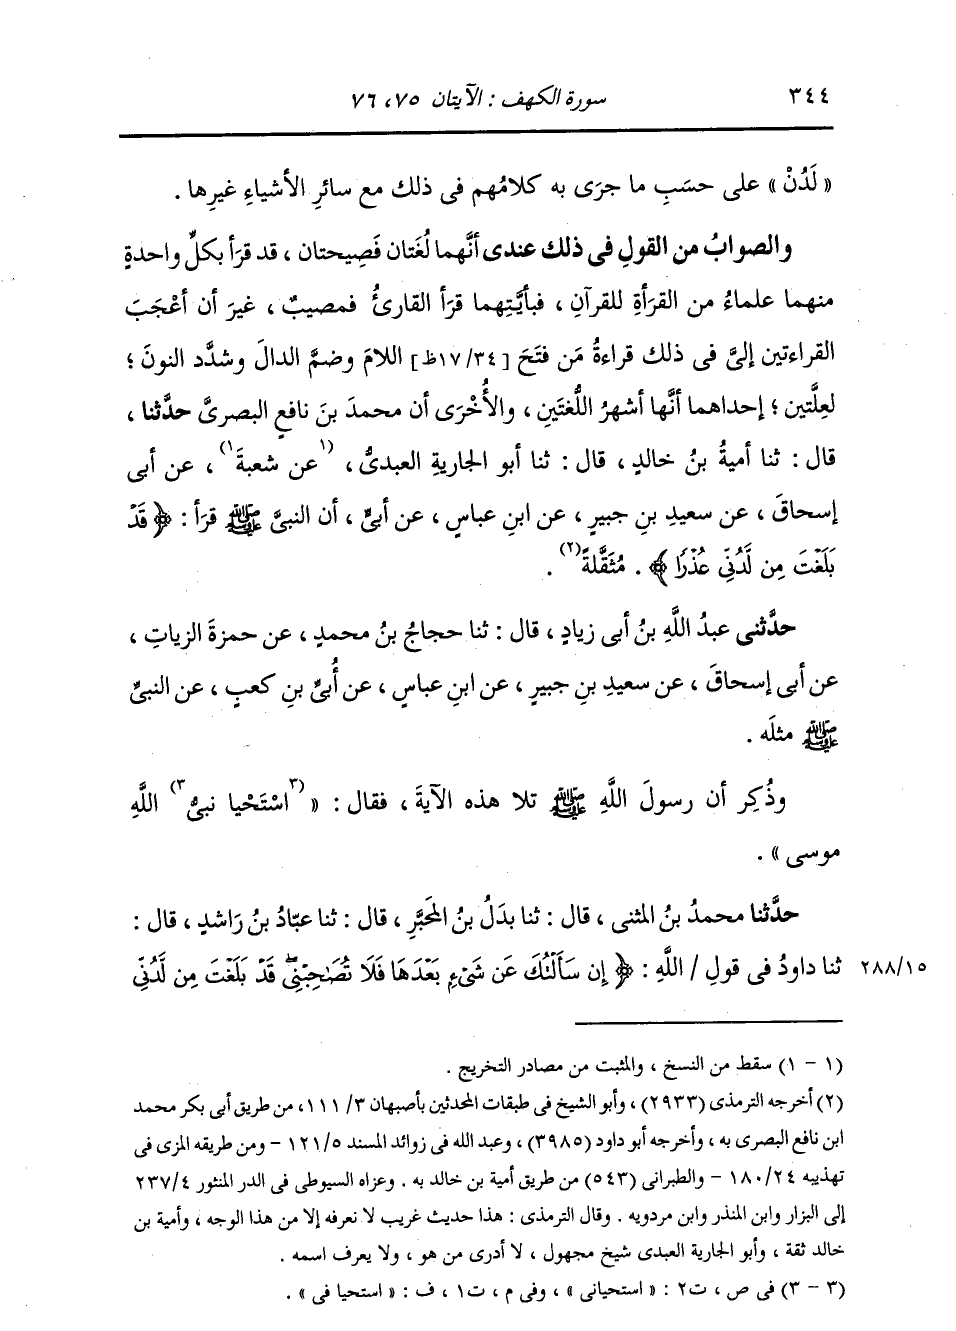 ٣٤٤
سورة الكهف : الآيتان ٧٥، ٧٦
« لَدُنْ » على حسَبِ ما جرَى به كلامُهم فى ذلك مع سائرِ الأشياءِ غيرِها .
والصوابُ من القولِ فى ذلك عندى أنَّهما لُغَتان فَصِيحتان ، قد قرَأ بكلِّ واحدةٍ
منهما علماءُ من القرَأةِ للقرآنِ ، فبأيَّتِهما قرَأ القارئُ فمصيبٌ ، غيرَ أن أعْجَبَ
القراءتين إلىَّ فى ذلك قراءةُ مَن فتَحَ [٣٤/ ١٧ظ] اللامَ وضمَّ الدالَ وشدَّد النونَ ؛
لعِلَّتين ؛ إحداهما أنَّها أشهرُ اللُّغتَين ، والأُخْرَى أن محمدَ بنَ نافعٍ البصرىَّ حدَّثنا ،
قال : ثنا أميةُ بنُ خالدٍ ، قال : ثنا أبو الجاريةِ العبدىُّ ، (١عن شعبةَ١) ، عن أبى
إسحاقَ ، عن سعيدِ بنِ جبيرٍ ، عن ابنِ عباسٍ ، عن أُبىٍّ ، أن النبىَّ ﷺ قرَأ : ﴿ قَدْ
بَلَغْتَ مِن لَّدُنِّي عُذْرًا ﴾ . مُثَقَّلةً(٢) .
حدَّثنى عبدُ اللَّهِ بنُ أبى زيادٍ ، قال : ثنا حجاجُ بنُ محمدٍ ، عن حمزةَ الزياتِ ،
عن أبى إسحاقَ ، عن سعيدِ بنِ جبيرٍ ، عن ابنِ عباسٍ ، عن أُبىِّ بنِ كعبٍ ، عن النبىِّ
ﷺ مثلَه .
وذُكِر أن رسولَ اللَّهِ ﷺ تلا هذه الآيةَ ، فقال : « (٣اسْتَحْيا نبىُّ٣) اللَّهِ
موسى » .
حدَّثنا محمدُ بنُ المثنى ، قال : ثنا بدَلُ بنُ المُحَبَّرِ ، قال : ثنا عبّادُ بنُ رَاشدٍ ، قال :
ثنا داودُ فى قولِ / اللَّهِ : ﴿ إِن سَأَلْتُكَ عَن شَيْءٍ بَعْدَهَا فَلَا تُصَاحِبْنِي ۖ قَدْ بَلَغْتَ مِن لَّدُنِّي
٢٨٨/١٥
(١ - ١) سقط من النسخ ، والمثبت من مصادر التخريج .
(٢) أخرجه الترمذى (٢٩٣٣) ، وأبو الشيخ فى طبقات المحدثين بأصبهان ٣/ ١١١، من طريق أبى بكر محمد
ابن نافع البصرى به ، وأخرجه أبو داود (٣٩٨٥) ، وعبد الله فى زوائد المسند ١٢١/٥ - ومن طريقه المزى فى
تهذيبه ١٨٠/٢٤ - والطبرانى (٥٤٣) من طريق أمية بن خالد به . وعزاه السيوطى فى الدر المنثور ٢٣٧/٤
إلى البزار وابن المنذر وابن مردويه . وقال الترمذى : هذا حديث غريب لا نعرفه إلا من هذا الوجه ، وأمية بن
خالد ثقة ، وأبو الجارية العبدى شيخ مجهول ، لا أدرى من هو ، ولا يعرف اسمه .
(٣ - ٣) فى ص ، ت٢ : « استحيانى » ، وفى م ، ت١ ، ف : « استحيا فى » .